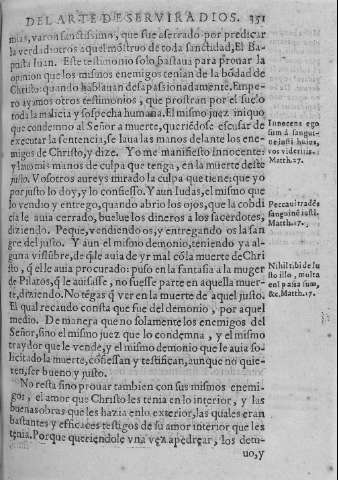 DEL ARTE DE SERVIR A DIOS. 351
mias, varon sanctissimo, que fue aserrado por predicar
la verdad: otros aquel mõstruo de toda sanctidad, El Ba-
ptista Iuan. Este testimonio solo bastaua para prouar la
opinion que los mismos enemigos tenian de la bõdad de
Christo: quando hablauan desapassionadamente. Empe-
ro ayamos otros testimonios, que prostran por el suelo
toda la malicia y sospecha humana. El mismo juez iniquo
que condemno al Señor a muerte, queriẽdose escusar de
executar la sentencia, se laua las manos delante los ene-
migos de Christo, y dize. Yo me manifiesto Innocente:
y lauo mis manos de culpa que tenga, en la muerte deste
justo. Vosotros aureys mirado la culpa que tiene: que yo
por justo lo doy, y lo confiesso. Y aun Iudas, el mismo que
lo vendio y entrego, quando abrio los ojos, que la cobdi
cia le auia cerrado, buelue los dineros a los sacerdotes,
diziendo. Peque, vendiendo os, y entregando os la san
gre del justo. Y aun el mismo demonio, teniendo ya al-
guna vislũbre, de q̃ le auia de yr mal cõ la muerte de Chri
sto, q̃ el le auia procurado: puso en la fantasia a la muger
de Pilatos, q̃ le auisasse, no fuesse parte en aquella muer-
te, diziendo. No tẽgas q̃ ver en la muerte de aquel justo.
El qual recaudo consta que fue del demonio, por aquel
medio. De manera que no solamente los enemigos del
Señor, sino el mismo juez que lo condemna, y el mismo
traydor que le vende, y el mismo demonio que le auia so-
licitado la muerte, cõfiessan y testifican, aunque no quie-
ren, ser bueno y justo.
No resta sino prouar tambien con sus mismos enemi-
gos, el amor que Christo les tenia en lo interior, y las
buenas obras que les hazia en lo exterior, las quales eran
bastantes y efficaces testigos de su amor interior que les
tenia. Porque queriendole vna vez apedrear, los dem-
uo, y
Innocens ego
sum à sangui-
ne iusti huius,
vos videritis.
Matth. 27.
Peccaui tradẽs
sanguinẽ iustũ.
Matth. 27.
Nihil tibi & iu
sto illo, multa
enĩ passa sum,
&c. Matth. 27.